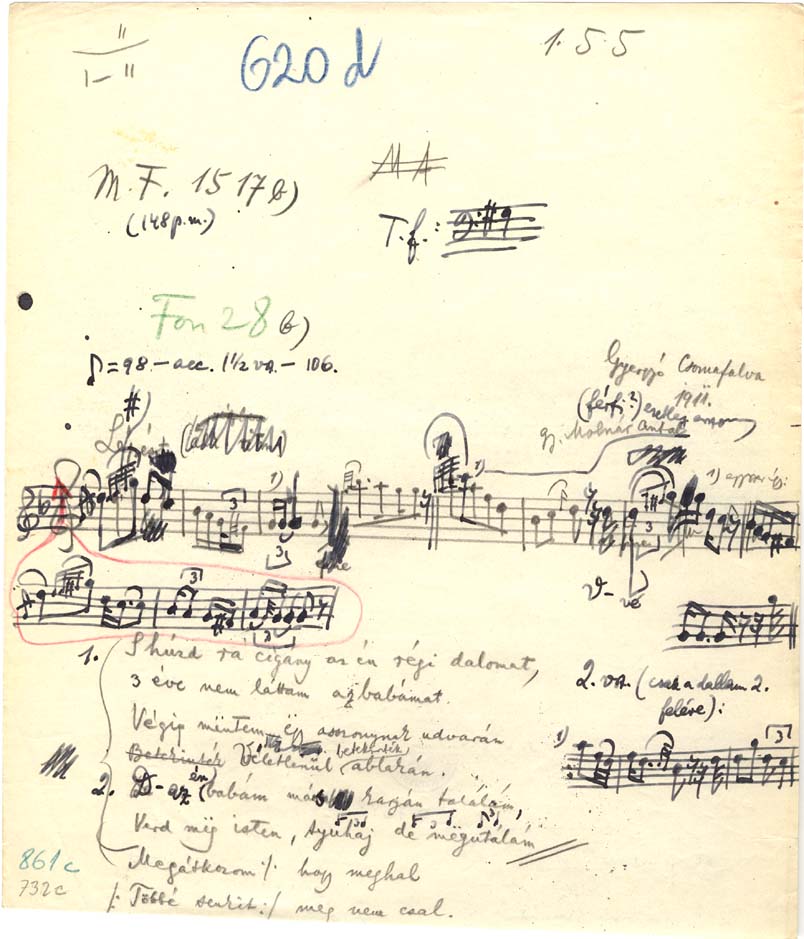 II
I–II
620 d
1. 5 5
M. F. 1517 b)
(148 p.m.)
M A
T. f.:
Fon 28 b)
♪ = 98. – acc. 1½ va. – 106.
Gyergyó Csomafalva
1911.
(férfi?) esetleg asszony
gy. Molnár Antal
#)
1)
3
1)
3
1)
3
3
3
vé
1. S húzd rá cigány az én régi dalomat,
3 éve nem láttam a babámat.
Végig mentem egy asszonynak udvarán
Betekinték Véletlenül betekinték ablakán.
2. D-az én babám más karján találám,
Verd még isten, tyuhaj de mëgutálám
Megátkozom :/: hogy meghal
/: Többé senkit :/ meg nem csal.
2. va. (csak a dallam 2.
felére):
1)
3
861 c
732 c